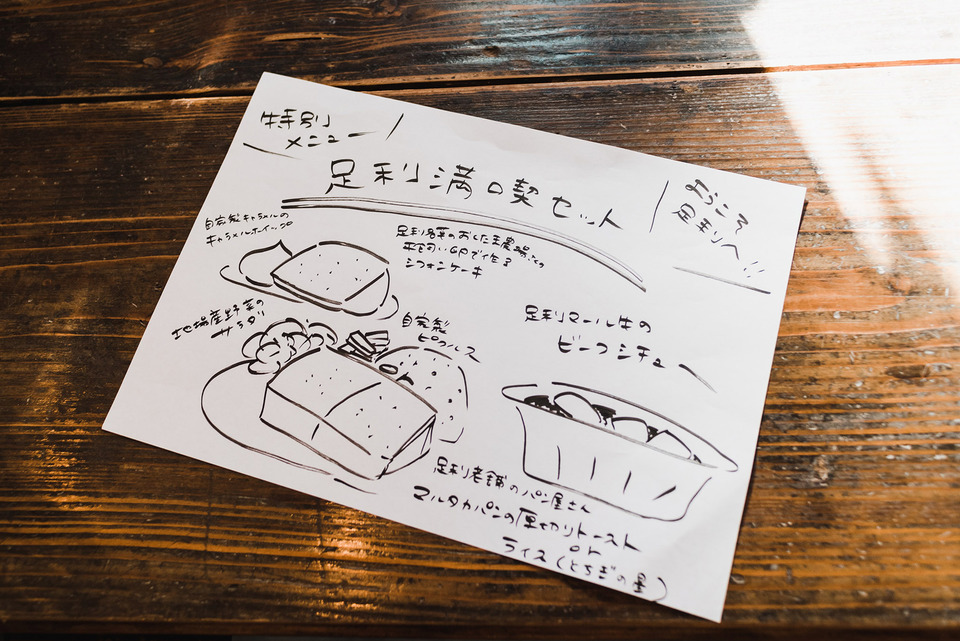 特別
メニュー
足利満喫セット
ようこそ
足利へ
自家製キャラメルの
キャラメルホイップ
足利名草のおした農場さんの
平飼いGPで作る
シフォンケーキ
地場産野菜の
サラダ
自家製
ピクルス
足利マール牛の
ビーフシチュー
or
足利老舗のパン屋さん
マルタカパンの厚切りトースト
or
ライス(とちぎの星)